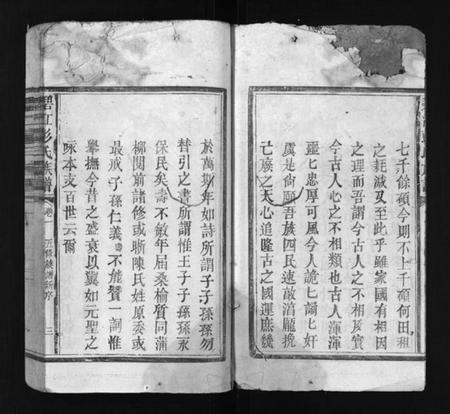 七千餘碩今則不上千碩何田租
之耗減又至此乎雖家國有相因
之理而吾謂今古人之不相及實
今古人心之不相類也古人渾渾
噩噩忠厚可風今人詭詭譎譎奸
虞是尙願吾族四民速敵淆隴挽
己漓之天心追隆古之國運庶幾
於萬斯年如詩所謂子子孫孫勿
替引之書所謂惟王子子孫孫永
保民矣壽不敏年屆桑榆質同蒲
柳閱前諸修或晰陳氏姓原委或
最戒子孫仁義壽不能贊一詞惟
舉撫今昔之盛衰以冀如元聖之
啄本支百世云爾
碧江彭氏族譜 卷一 五修族譜新序 三